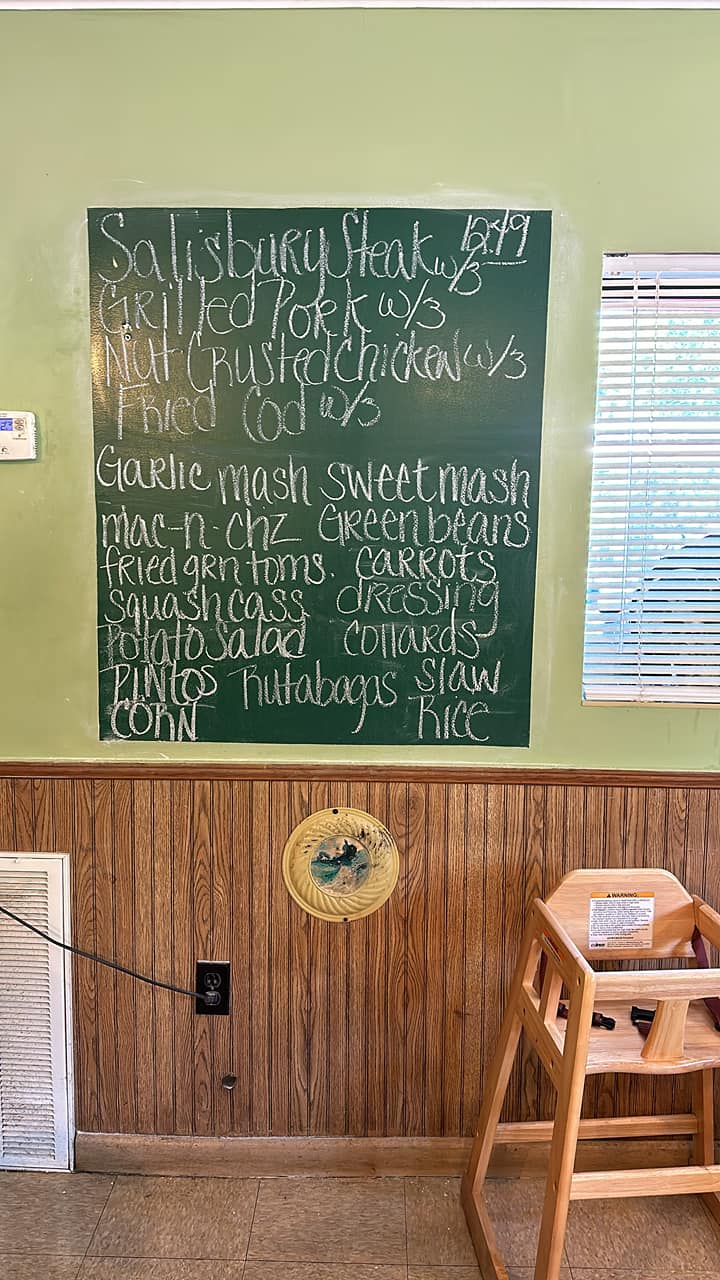 Salisbury Steak w/3 12.49
Grilled Pork w/3
Nut Crusted Chicken w/3
Fried Cod w/3
Garlic mash sweet mash
mac-n-chz Green beans
fried grn toms. carrots
squash cass dressing
Potato Salad collards
Pintos Rutabagas slaw
CORN Rice
WARNING